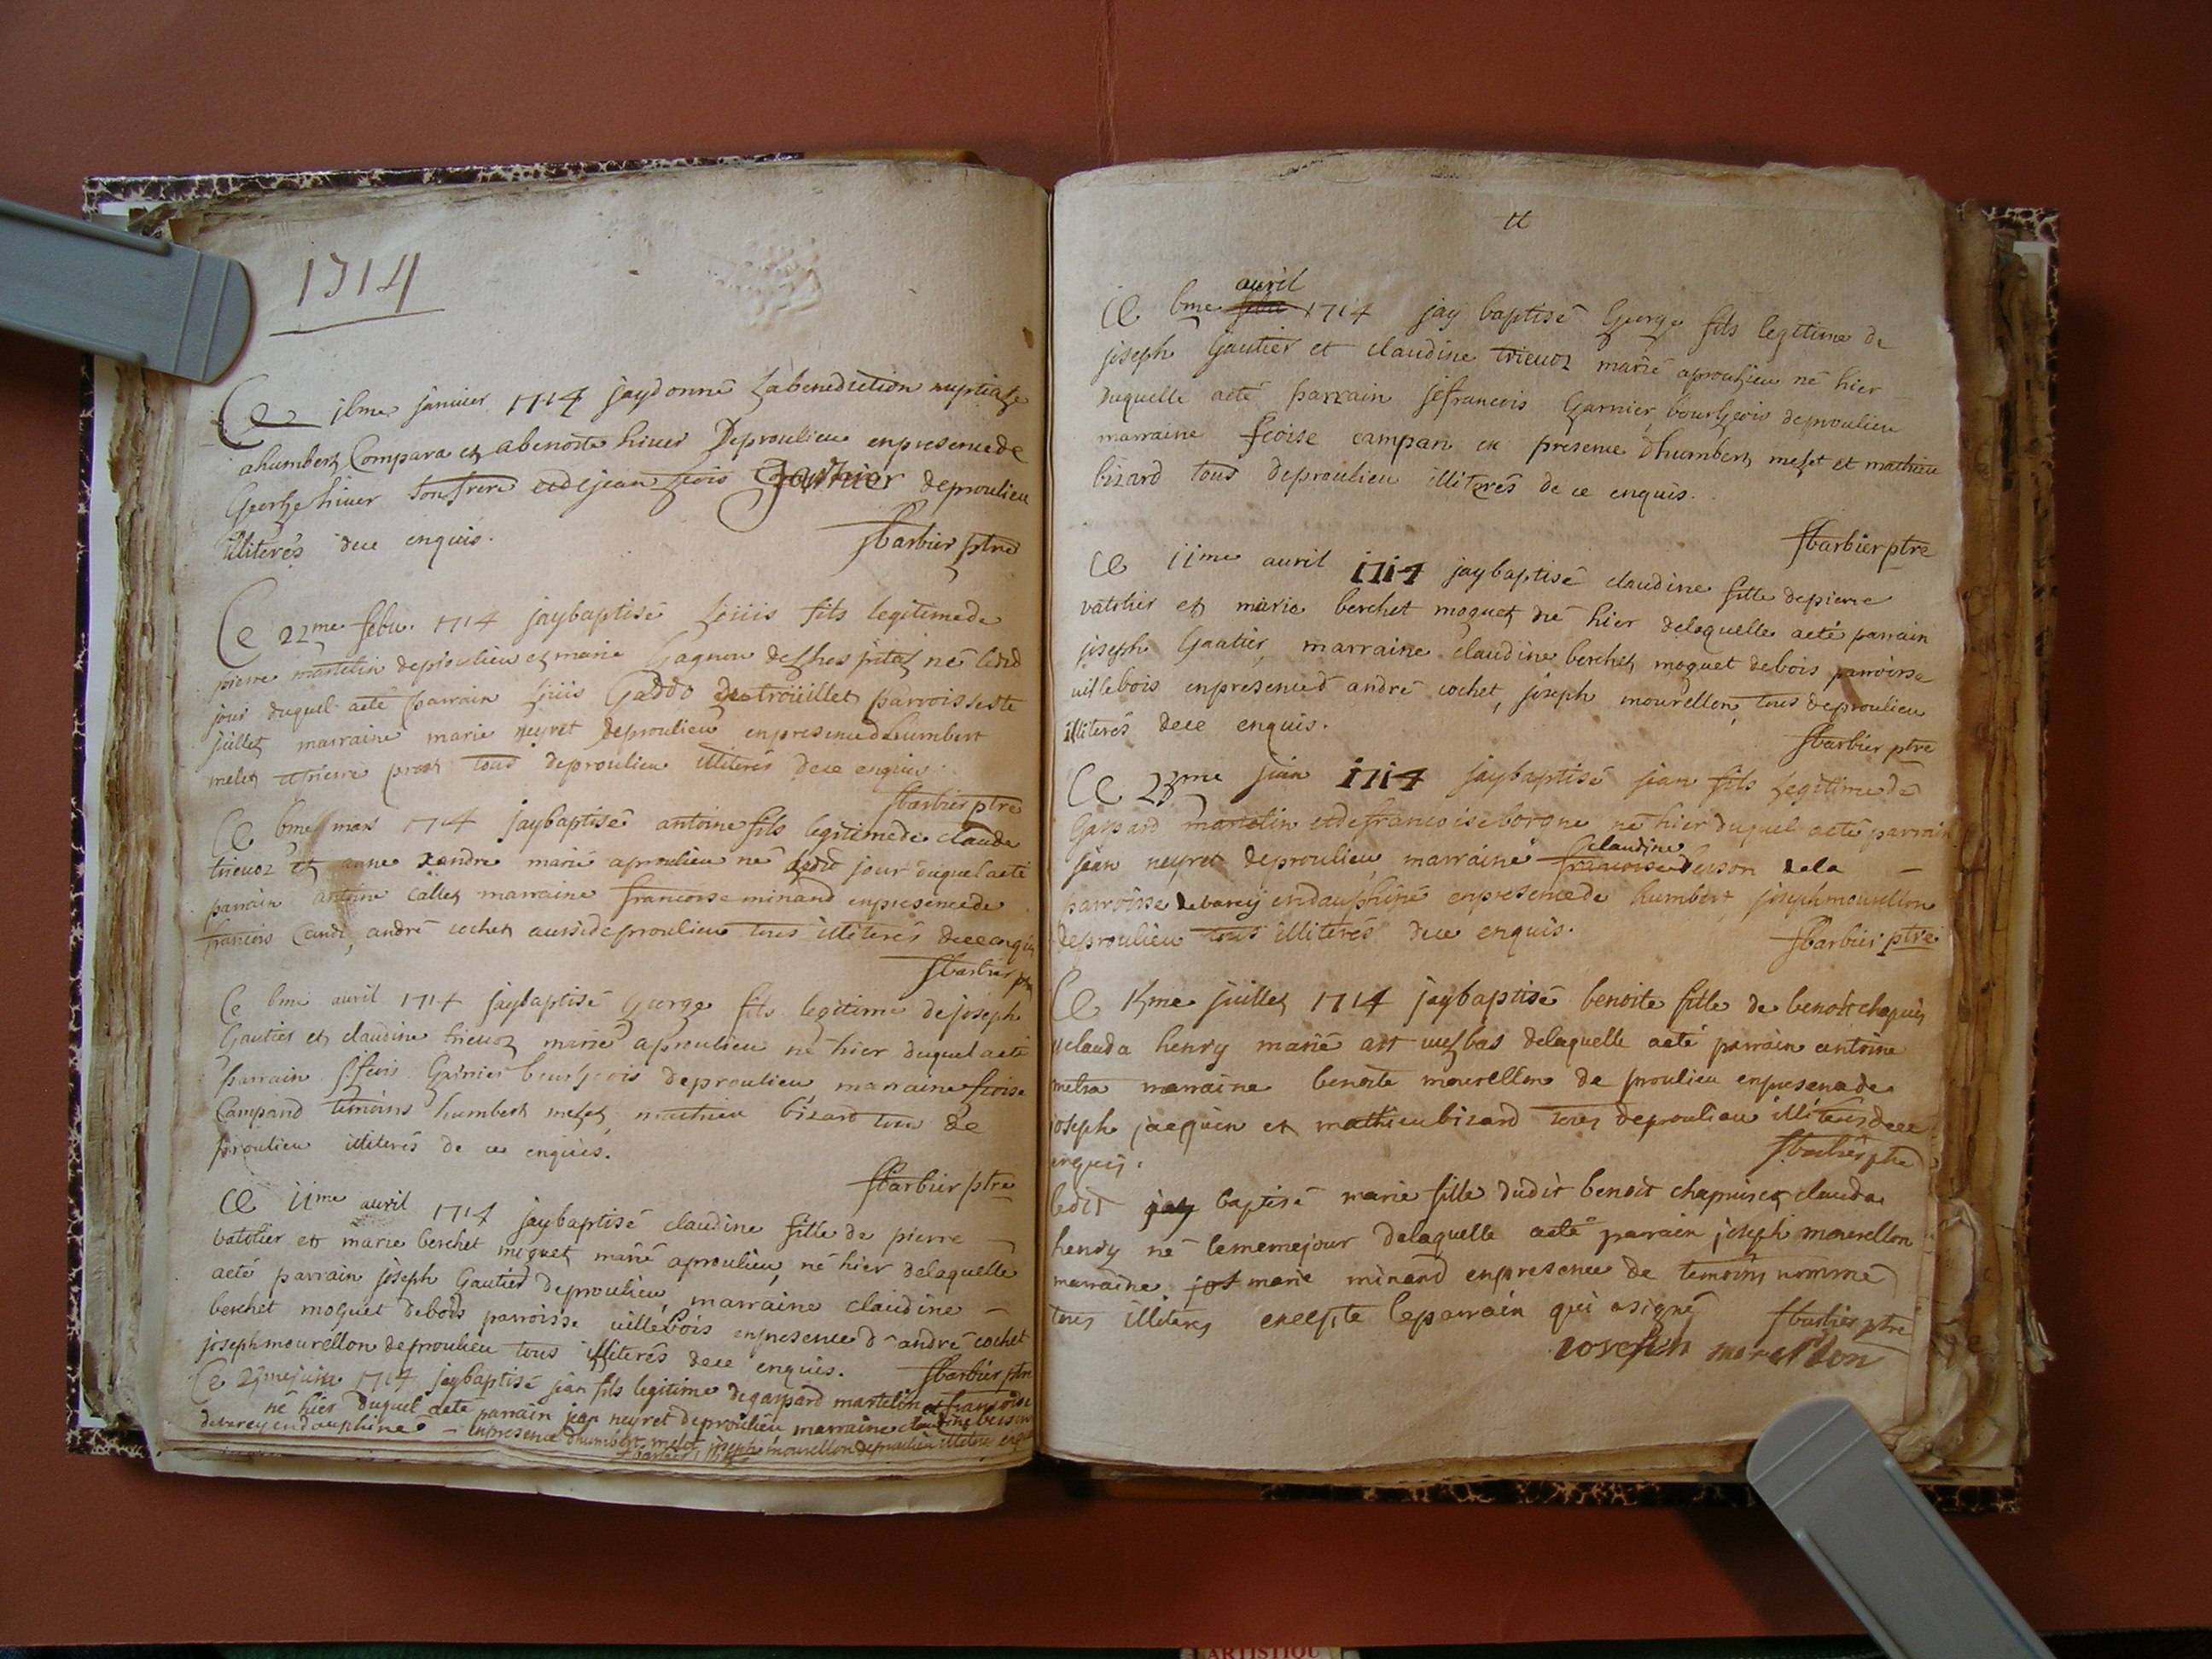 1714
Ce 16me janvier 1714 jay donné la benediction nuptiale
a humbert Compara et a benoite hiuer de proulieu en presence de
George hiuer son frere et de jean fcois Garnier de proulieu
illiterés de ce enquis.
Barbier ptre
Ce 22me febu. 1714 jay baptisé Louis fils legitime de
pierre martelin de proulieu et marie Gagneu de Lhospital né ledid
jour duquel a eté parrain Louis Gaddo de trouillet parroisse st
juillet marraine marie neyret de proulieu en presence d humbert
melet et pierre prost tous de proulieu illiterés de ce enquis.
Barbier ptre
Ce bme mars 1714 jay baptisé antoine fils legitime de claude
trieuoz et anne xandre marié a proulieu né ledid jour duquel a eté
parrain antoine callet marraine francoise minand en presence de
francois Cande, andré cochet aussi de proulieu tous illiterés de ce enquis
Barbier ptre
Ce bme auril 1714 jay baptisé George fils legitime de joseph
Gautier et claudine trieuoz marié a proulieu né hier duquel a eté
parrain Sr fcois Garnier bourgeois de proulieu marraine fcoise
Campand temoins humbert melet mathieu bizard tous de
proulieu illiterés de ce enquis.
Barbier ptre
Ce 11me auril 1714 jay baptisé claudine fille de pierre
vatolier et marie berchet moguet marié a proulieu, né hier de laquelle
a eté parrain joseph Gautier de proulieu, marraine claudine
berchet moguet de bois parroisse villebois en presence d andré cochet
joseph mourellon de proulieu tous illiterés de ce enquis.
Barbier ptre
Ce 23me juin 1714 jay baptisé jean fils legitime de gaspard martelin et francoise
né hier duquel a eté parrain jean neyret de proulieu marraine claudine
de varey en dauphiné en presence d humbert melet, joseph mourellon de proulieu illiterés enquis
Barbier ptre
Ce bme febu auril 1714 jay baptisé George fils legitime de
joseph Gautier et claudine trieuoz marié a proulieu né hier
duquelle a eté parrain Sr francois Garnier bourgeois de proulieu
marraine fcoise campan en presence d humbert melet et mathieu
bizard tous de proulieu illiterés de ce enquis.
Barbier ptre
Ce 11me auril 1714 jay baptisé claudine fille de pierre
vatolier et marie berchet moguet né hier de laquelle a eté parrain
joseph Gautier, marraine claudine berchet moguet de bois parroisse
villebois en presence d andré cochet, joseph mourellon, tous de proulieu
illiterés de ce enquis.
Barbier ptre
Ce 23me juin 1714 jay baptisé jean fils legitime de
Gaspard martelin et de francoise borgne né hier duquel a eté parrain
jean neyret de proulieu, marraine francoise claudine de la
parroisse de varey en dauphiné en presence de humbert joseph mourellon
de proulieu tous illiterés de ce enquis.
Barbier ptre
Ce 15me juillet 1714 jay baptisé benoite fille de benoit chapuis
et clauda henry marié de laquelle a eté parrain antoine
metra marraine benoite mourellon de proulieu en presence de
joseph jacquin et mathieu bizard tous de proulieu illiterés de ce
enquis.
Barbier ptre
ledit jay baptisé marie fille dudit benoit chapuis et clauda
henry né le meme jour de laquelle a eté parrain joseph mourellon
marraine jos marie minand en presence de temoins nommé
tous illiterés excepté le parrain qui a signé
Barbier ptre
Ioseph morellon
ARTISTIQU